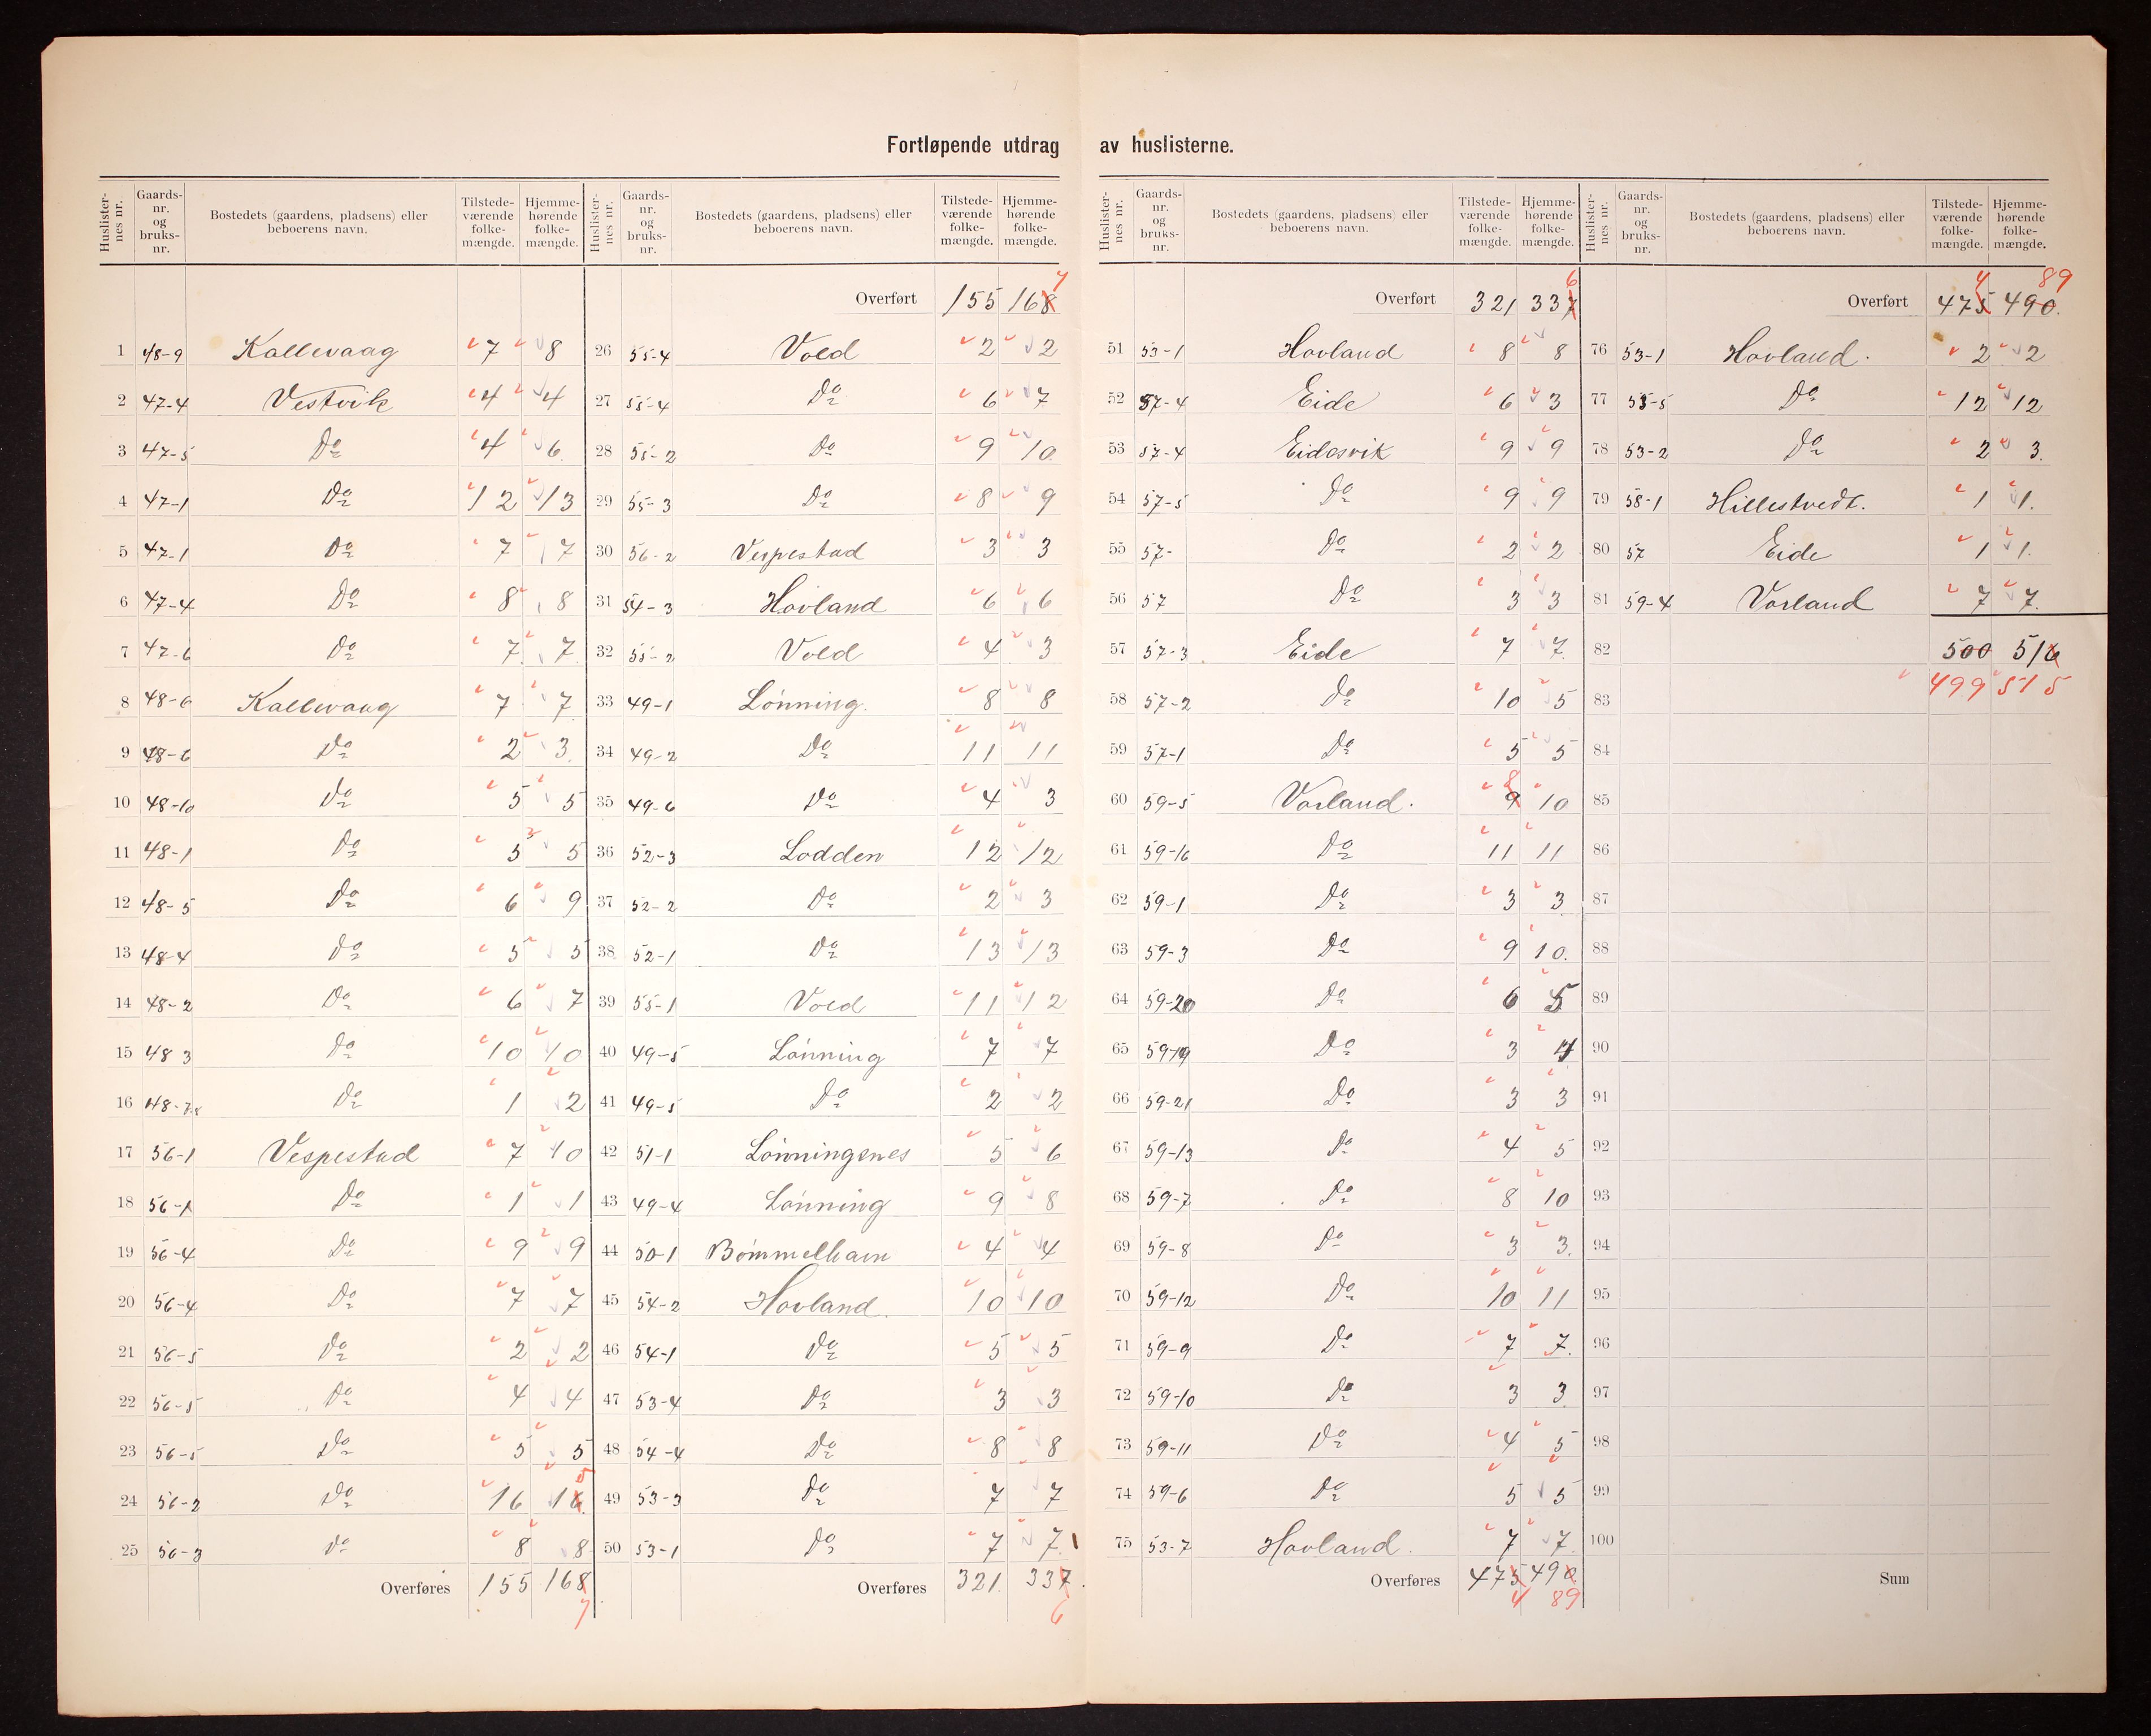 Fortløpende utdrag av huslisterne.
Huslisternes nr. Gaardsnr. og bruksnr. Bostedets (gaardens, pladsens) eller beboerens navn. Tilstedeværende folkemængde. Hjemmehørende folkemængde.
1 48-9 Kallevaag 7 8
2 47-4 Vestvik 4 4
3 47-5 Do 4 6
4 47-1 Do 12 13
5 47-1 Do 7 7
6 47-4 Do 8 8
7 47-6 Do 7 7
8 48-6 Kallevaag 7 7
9 48-6 Do 2 3
10 48-10 Do 5 5
11 48-1 Do 5 5
12 48-5 Do 6 9
13 48-4 Do 5 5
14 48-2 Do 6 7
15 48 3 Do 10 10
16 48-7.8 Do 1 2
17 56-1 Vespestad 7 10
18 56-1 Do 1 1
19 56-4 Do 9 9
20 56-4 Do 7 7
21 56-5 Do 2 2
22 56-5 Do 4 4
23 56-5 Do 5 5
24 56-2 Do 16 16 5
25 56-3 Do 8 8
Overføres 155 168 7
Huslisternes nr. Gaardsnr. og bruksnr. Bostedets (gaardens, pladsens) eller beboerens navn. Tilstedeværende folkemængde. Hjemmehørende folkemængde.
Overført 155 168 7
26 55-4 Vold 2 2
27 55-4 Do 6 7
28 55-2 Do 9 10
29 55-3 Do 8 9
30 56-2 Vespestad 3 3
31 54-3 Hovland 6 6
32 55-2 Vold 4 3
33 49-1 Lønning. 8 8
34 49-2 Do 11 11
35 49-6 Do 4 3
36 52-3 Lodden 12 12
37 52-2 Do 2 3
38 52-1 Do 13 13
39 55-1 Vold 11 12
40 49-5 Lønning 7 7
41 49-5 Do 2 2
42 51-1 Lønningenes 5 6
43 49-4 Lønning 9 8
44 50-1 Bømmelhavn 4 4
45 54-2 Hovland. 10 10
46 54-1 Do 5 5
47 53-4 Do 3 3
48 54-4 Do 8 8
49 53-3 Do 7 7
50 53-1 Do 7 7.
Overføres 321. 337. 6
Huslisternes nr. Gaardsnr. og bruksnr. Bostedets (gaardens, pladsens) eller beboerens navn. Tilstedeværende folkemængde. Hjemmehørende folkemængde.
Overført 321 337 6
51 53-1 Hovland 8 8
52 57-4 Eide 6 3
53 57-4 Eidesvik 9 9
54 57-5 Do 9 9
55 57- Do 2 2
56 57 Do 3 3
57 57-3 Eide 7 7.
58 57-2 Do 10 5
59 57-1 Do 5 5
60 59-5 Vorland. 9 8 10
61 59-16 Do 11 11
62 59-1 Do 3 3
63 59-3 Do 9 10.
64 59-20 Do 6 5
65 59-19 Do 3 4
66 59-21 Do 3 3
67 59-13 Do 4 5
68 59-7 Do 8 10
69 59-8 Do 3 3.
70 59-12 Do 10 11
71 59-9 Do 7 7.
72 59-10 Do 3 3
73 59-11 Do 4 5
74 59-6 Do 5 5
75 53-7 Hovland. 7 7.
Overføres 475 490 4 89
Huslisternes nr. Gaardsnr. og bruksnr. Bostedets (gaardens, pladsens) eller beboerens navn. Tilstedeværende folkemængde. Hjemmehørende folkemængde.
Overført 475 4 490. 89
76 53-1 Hovland. 2 2
77 53-5 Do 12 12
78 53-2 Do 2 3.
79 58-1 Hillestvedt. 1 1.
80 57 Eide 1 1.
81 59-4 Vorland 7 7.
82 500 516
83 499 515
84
85
86
87
88
89
90
91
92
93
94
95
96
97
98
99
100
Sum